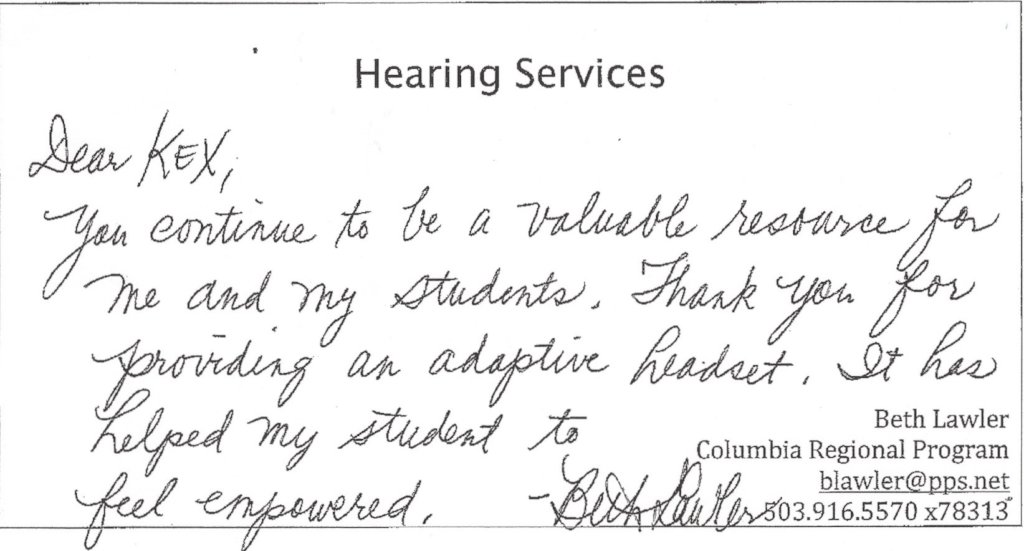 Hearing Services
Dear KEX,
You continue to be a valuable resource for
me and my students. Thank you for
providing an adaptive headset. It has
helped my student to
feel empowered. - Beth Lawler
Beth Lawler
Columbia Regional Program
blawler@pps.net
503.916.5570 x78313